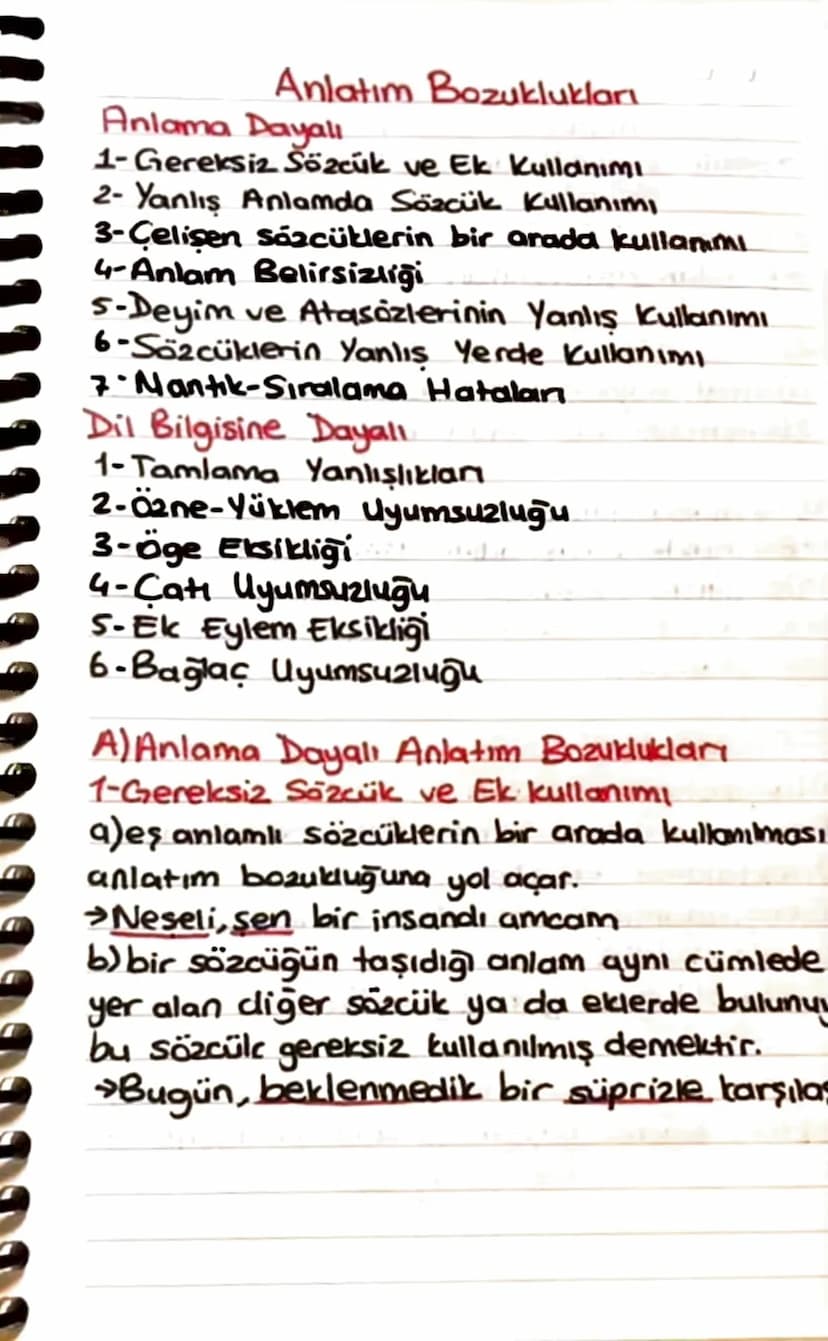 Anlatım Bozuklukları
Anlama Dayalı
1-Gereksiz Sözcük ve Ek Kullanımı
2- Yanlış Anlamda Sözcük Kullanımı
3-Çelişen sözcüklerin bir arada kullanımı
4-Anlam Belirsizliği
5-Deyim ve Atasözlerinin Yanlış Kullanımı
6-Sözcüklerin Yanlış Yerde Kullanımı
7-Mantık-Sıralama Hataları
Dil Bilgisine Dayalı
1-Tamlama Yanlışlıkları
2-Özne-Yüklem Uyumsuzluğu
3-Öge Eksikliği
4-Çatı Uyumsuzluğu
5-Ek Eylem Eksikliği
6-Bağlaç Uyumsuzluğu
A)Anlama Dayalı Anlatım Bozuklukları
1-Gereksiz Sözcük ve Ek kullanımı
a)eş anlamlı sözcüklerin bir arada kullanılması
anlatım bozukluğuna yol açar.
→Neşeli, şen bir insandı amcam
b)bir sözcüğün taşıdığı anlam aynı cümlede
yer alan diğer sözcük ya da eklerde
bu sözcük gereksiz kullanılmış demektir.
→Bugün, beklenmedik bir süprizle